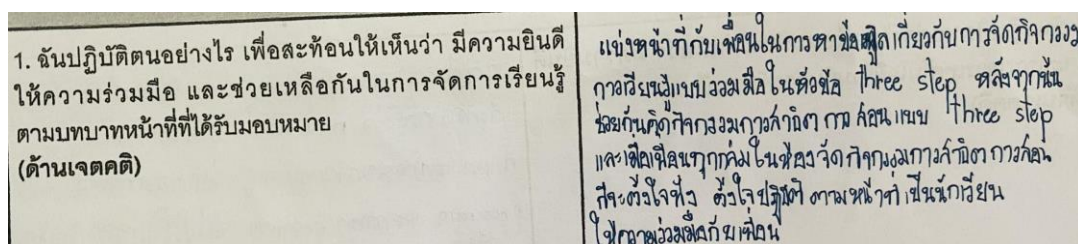 1. ฉันปฏิบัติตนอย่างไร เพื่อสะท้อนให้เห็นว่า มีความยินดี
ให้ความร่วมมือ และช่วยเหลือกันในการจัดการเรียนรู้
ตามบทบาทหน้าที่ที่ได้รับมอบหมาย
(ด้านเจตคติ)
แบ่งหน้าที่กับเพื่อนในการหาข้อมูลเกี่ยวกับการจัดกิจกรรม
การเรียนรู้แบบร่วมมือในหัวข้อ Three step หลังจากนั้น
ช่วยกันคิดกิจกรรมการสาธิต การสอนแบบ Three step
และเมื่อเพื่อนทุกกลุ่มในห้อง จัดกิจกรรมการสาธิต การสอน
ก็จะตั้งใจฟัง ตั้งใจปฏิบัติ ตามหน้าที่ เป็นนักเรียน
ให้ความร่วมมือกับเพื่อน